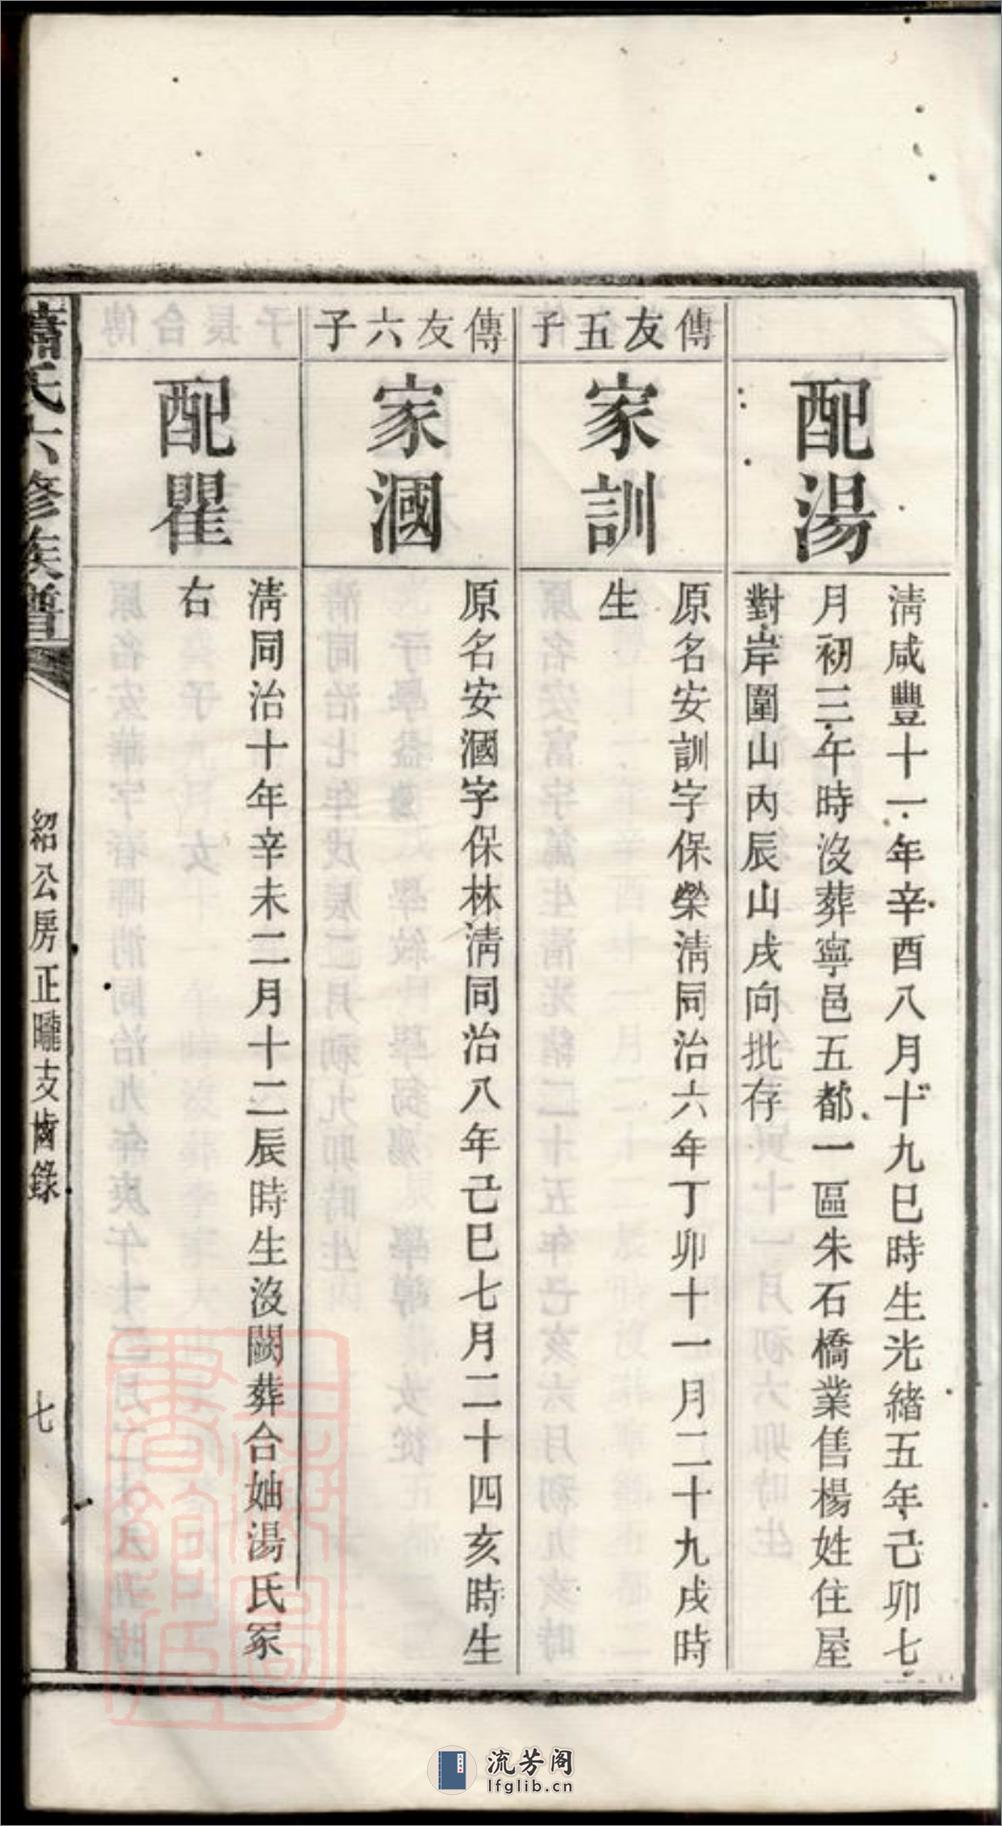 配湯
清咸豐十一年辛酉八月十九巳時生光緒五年己卯七
月初三午時沒葬寧邑五都一區朱石橋業售楊姓住屋
對岸圍山內辰山戌向批存
傳友五子
家訓
原名安訓字保榮清同治六年丁卯十一月二十九戌時
生
傳友六子
家漍
原名安漍字保林清同治八年己巳七月二十四亥時生
配瞿
清同治十年辛未二月十二辰時生沒闕葬合妯湯氏冢
右
蕭氏六修族譜
紹公房正隴支齒錄
七
流芳阁
lfglib.cn